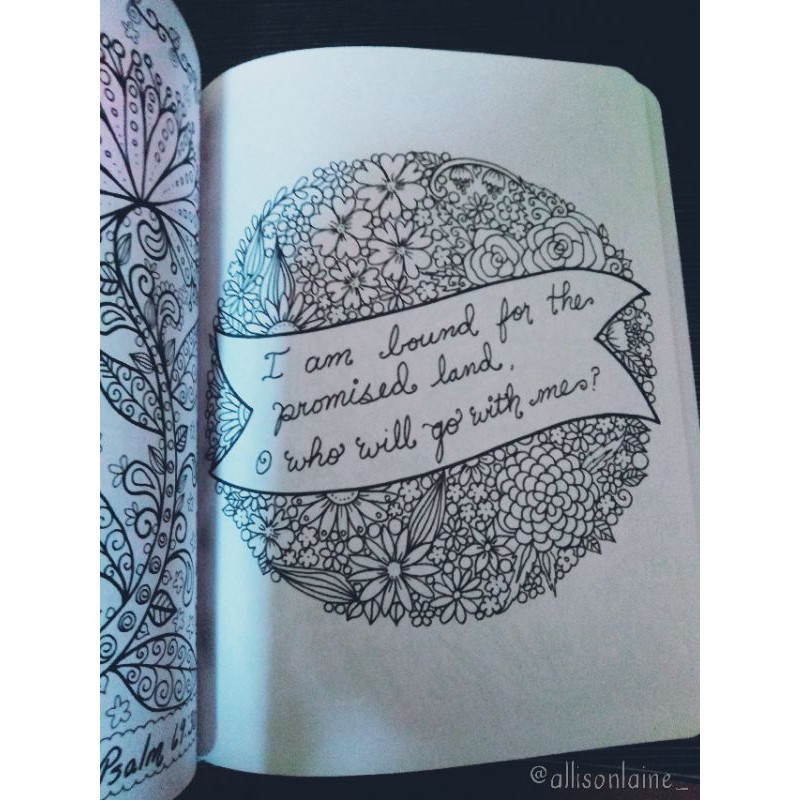 I am bound for the
promised land,
O who will go with me?
Psalm 69:3
@allisonlaine_